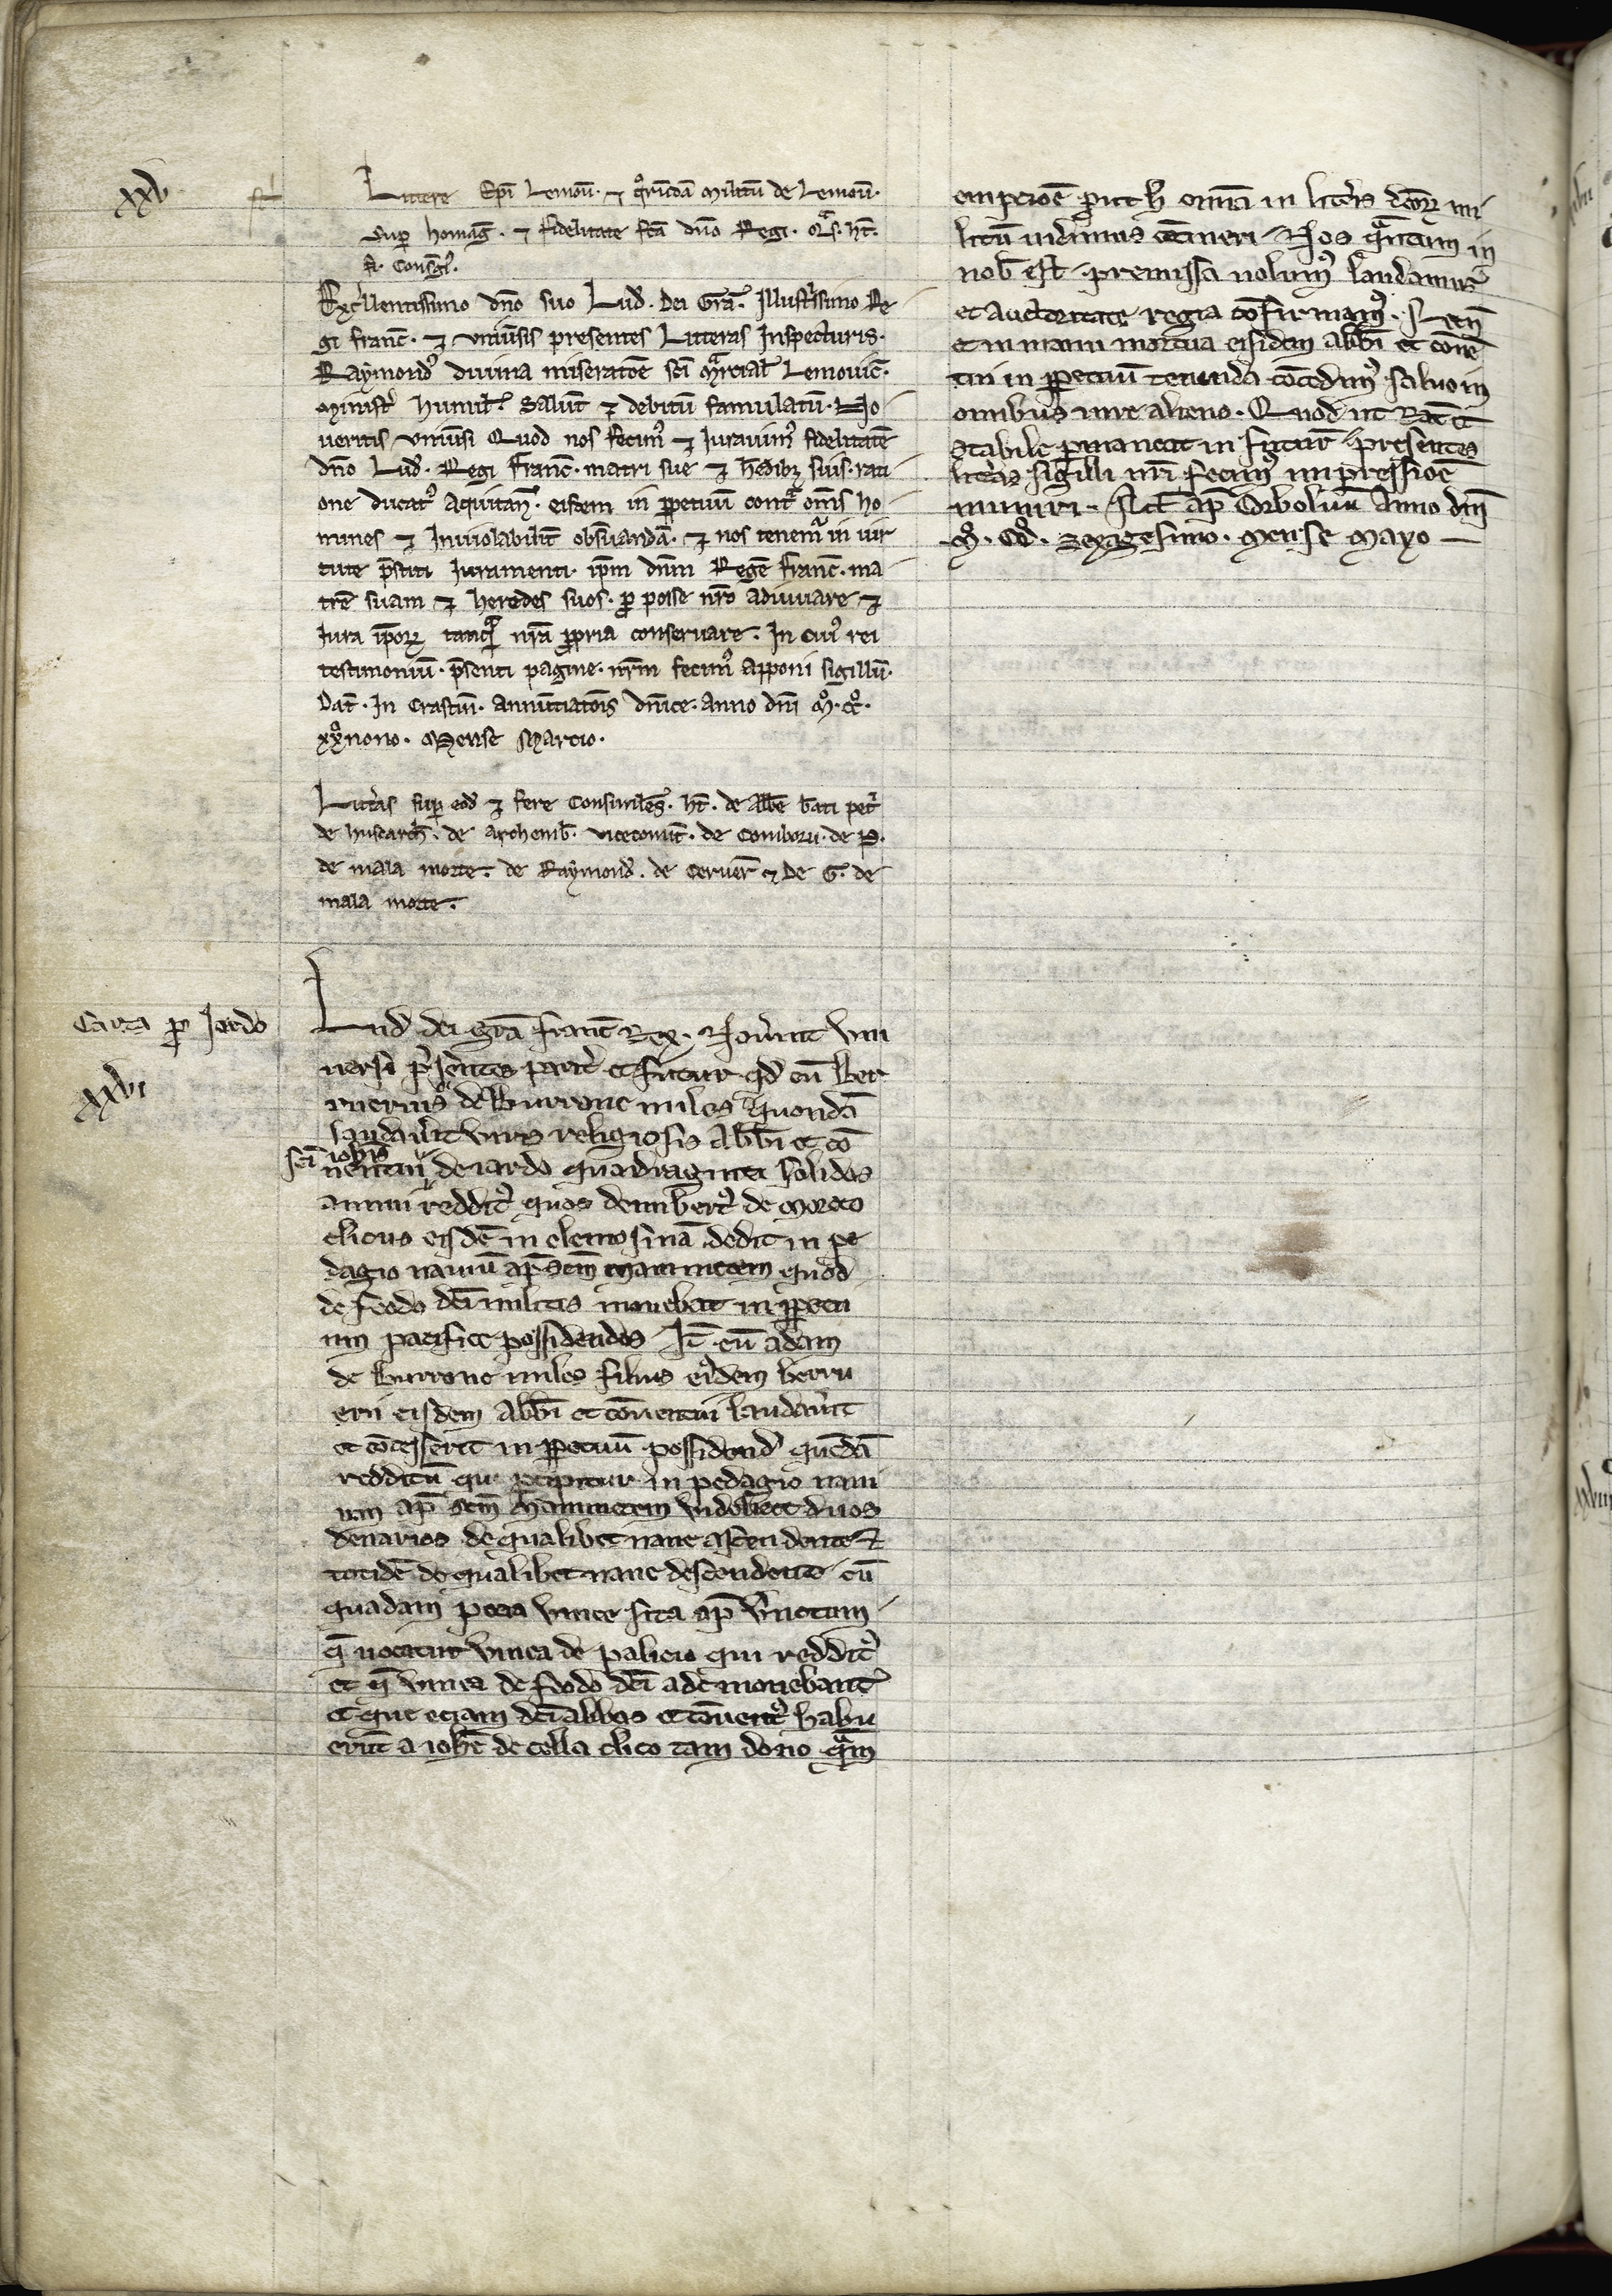 xxv
Littere Ep̄i Lemoū. ⁊ q̊rūdā militū de Lemoū.
Sup̱ homāg. ⁊ fidelitate fcā dn̄o Regi. Qͣs. ht̄.
A. Consḡl.
Excellentissimo dn̄o suo Lud̾. Dei Grā. Illustͥssimo Re
gi franc̄. ⁊ uniūsis presentes Litteras Inspecturis.
Raymond᷒ divina miseratōe sc̄i Mͣrcial̾ Lemovic̄.
Minist̾ humil̾. Salut̄ ⁊ debitū famulatū. No
veritis uniūsi Quod nos fecim᷒ ⁊ Iuravim᷒ fidelitatē
dn̄o Lud̾. Regi Franc̄. matri sue ⁊ h̄edibꝫ suis. rati
one ducat᷒ Aquitan̄. eisdem in ꝑpetuū contͣ om̄s ho
mines ⁊ Inviolabilit̾ obs̄uandā. ⁊ nos tenemͬ in vir
tute p̄stiti Iuramenti. ip̄m dn̄m Regē Franc̄. ma
trē suam ⁊ heredes suos. ꝓ posse nr̄o adiuvare ⁊
Iura ip̄oꝝ tanqͣ nr̄a ꝓpria conservare. In cui᷒ rei
testimoniū. p̄senti pagine. nr̄m fecim᷒ apponi sigillū.
Dat̄. In Crastin̄. annūtiatōis dn̄ice. anno dn̄i M̊. cc̊.
xx̊ nono. Mense Marcio.
Litt̾as sup̱ eod̾ ⁊ fere Consimiles. ht̄. de Abb̄e b̄ati pet̾
de Husdarch̄. de Archemb̾. vicecomit̄. de Comborn. de P.
de mala morte. de Raymond̾. de Cerver̄ ⁊ De G. de
mala morte.
Carta ꝓ Jardo
xxvi
Lud̾ dei grā franc̄ Rex. Nov̾int uni
versi p̾sentes parit̾ et futur̾ qd̾ cū Ber
ruerius de Burrone miles quondā
laudav̾it viris religiosis Abb̄i et cō
sc̄i iob̄is
ventui de iardo quadraginta solidos
annui reddit᷒ quos dembert᷒ de Moreto
clicus eisdē in elemosinā dedit in pe
dagio naviū ap̄ sc̄m Mammetem quod
de feodo dc̄i militis movebat in ꝑpetu
um pacifice possidendos It̄ cū adam
de Burrone miles filius eiꝰdem berru
erii eisdem Abb̄i et cōventui laudav̾it
et cōcesserit in ꝑpetuū possidend̾ quēdā
redditū qui ꝑcipitur in pedagio navi
um ap̄ sc̄m Mammetem videlicet duos
denarios de qualibet nave ascendente ⁊
totidē de qualibet nave descendente cū
quadam pecia vinee sita ap̄ v̾notam
q̄ vocatur vinea de palicio qui reddit᷒
et q̄ vinea de feodo dc̄i ade movebant᷒
et que etiam dc̄i abbas et cōvent᷒ habu
erūt a ioh̄e de cella clico tam dono qͣm
empciōe prout h̄ omīa in litt̾is dc̄oꝝ mi
litū vidimus cōtineri Nos qͣntum in
nob̾ est premissa volum᷒ laudamus
et auctoritate regia cōfirmam᷒. Necn̄
et in manu mortua eisdem abb̄i et cōvē
tui in ꝑpetuū tenenda cōcedim᷒ salvo in
omnibus iure alieno. Quod ut Rat̄ et
stabile ꝑmaneat in futur̄ presentes
litt̾as sigilli nr̄i fecim᷒ impressiōe
muniri. Act̄ ap̄ Corboliū Anno dn̄i
M̊. cc̊. sexagesimo. Mense Mayo